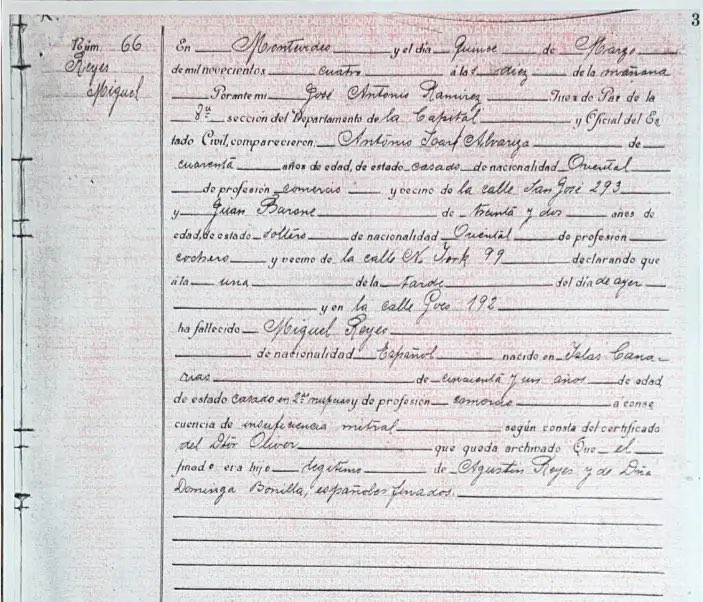 3
Núm. 66
Reyes
Miguel
En Montevideo y el día quince de Marzo
de mil novecientos cuatro á las diez de la mañana
Por ante mi José Antonio Ramirez Juez de Paz de la
8ª sección del Departamento de la Capital y Oficial del Es
tado Civil, comparecieron Antonio Alvariza de
cuarenta años de edad, de estado casado de nacionalidad Oriental
de profesión comercio y vecino de la calle San José 293
y Juan Barone de treinta y dos años de
edad, de estado soltero de nacionalidad Oriental de profesión
cochero y vecino de la calle N. York 99 declarando que
á la una de la tarde del día de ayer
y en la calle Goes 192
ha fallecido Miguel Reyes
de nacionalidad Español nacido en Islas Cana-
rias de cincuenta y un años de edad
de estado casado en 2as nupcias y de profesión comercio a conse
cuencia de insuficiencia mitral según consta del certificado
del Dtor Oliver que queda archivado Que el
finado era hijo legitimo de Agustin Reyes y de Dña
Dominga Bonilla, españoles finados.